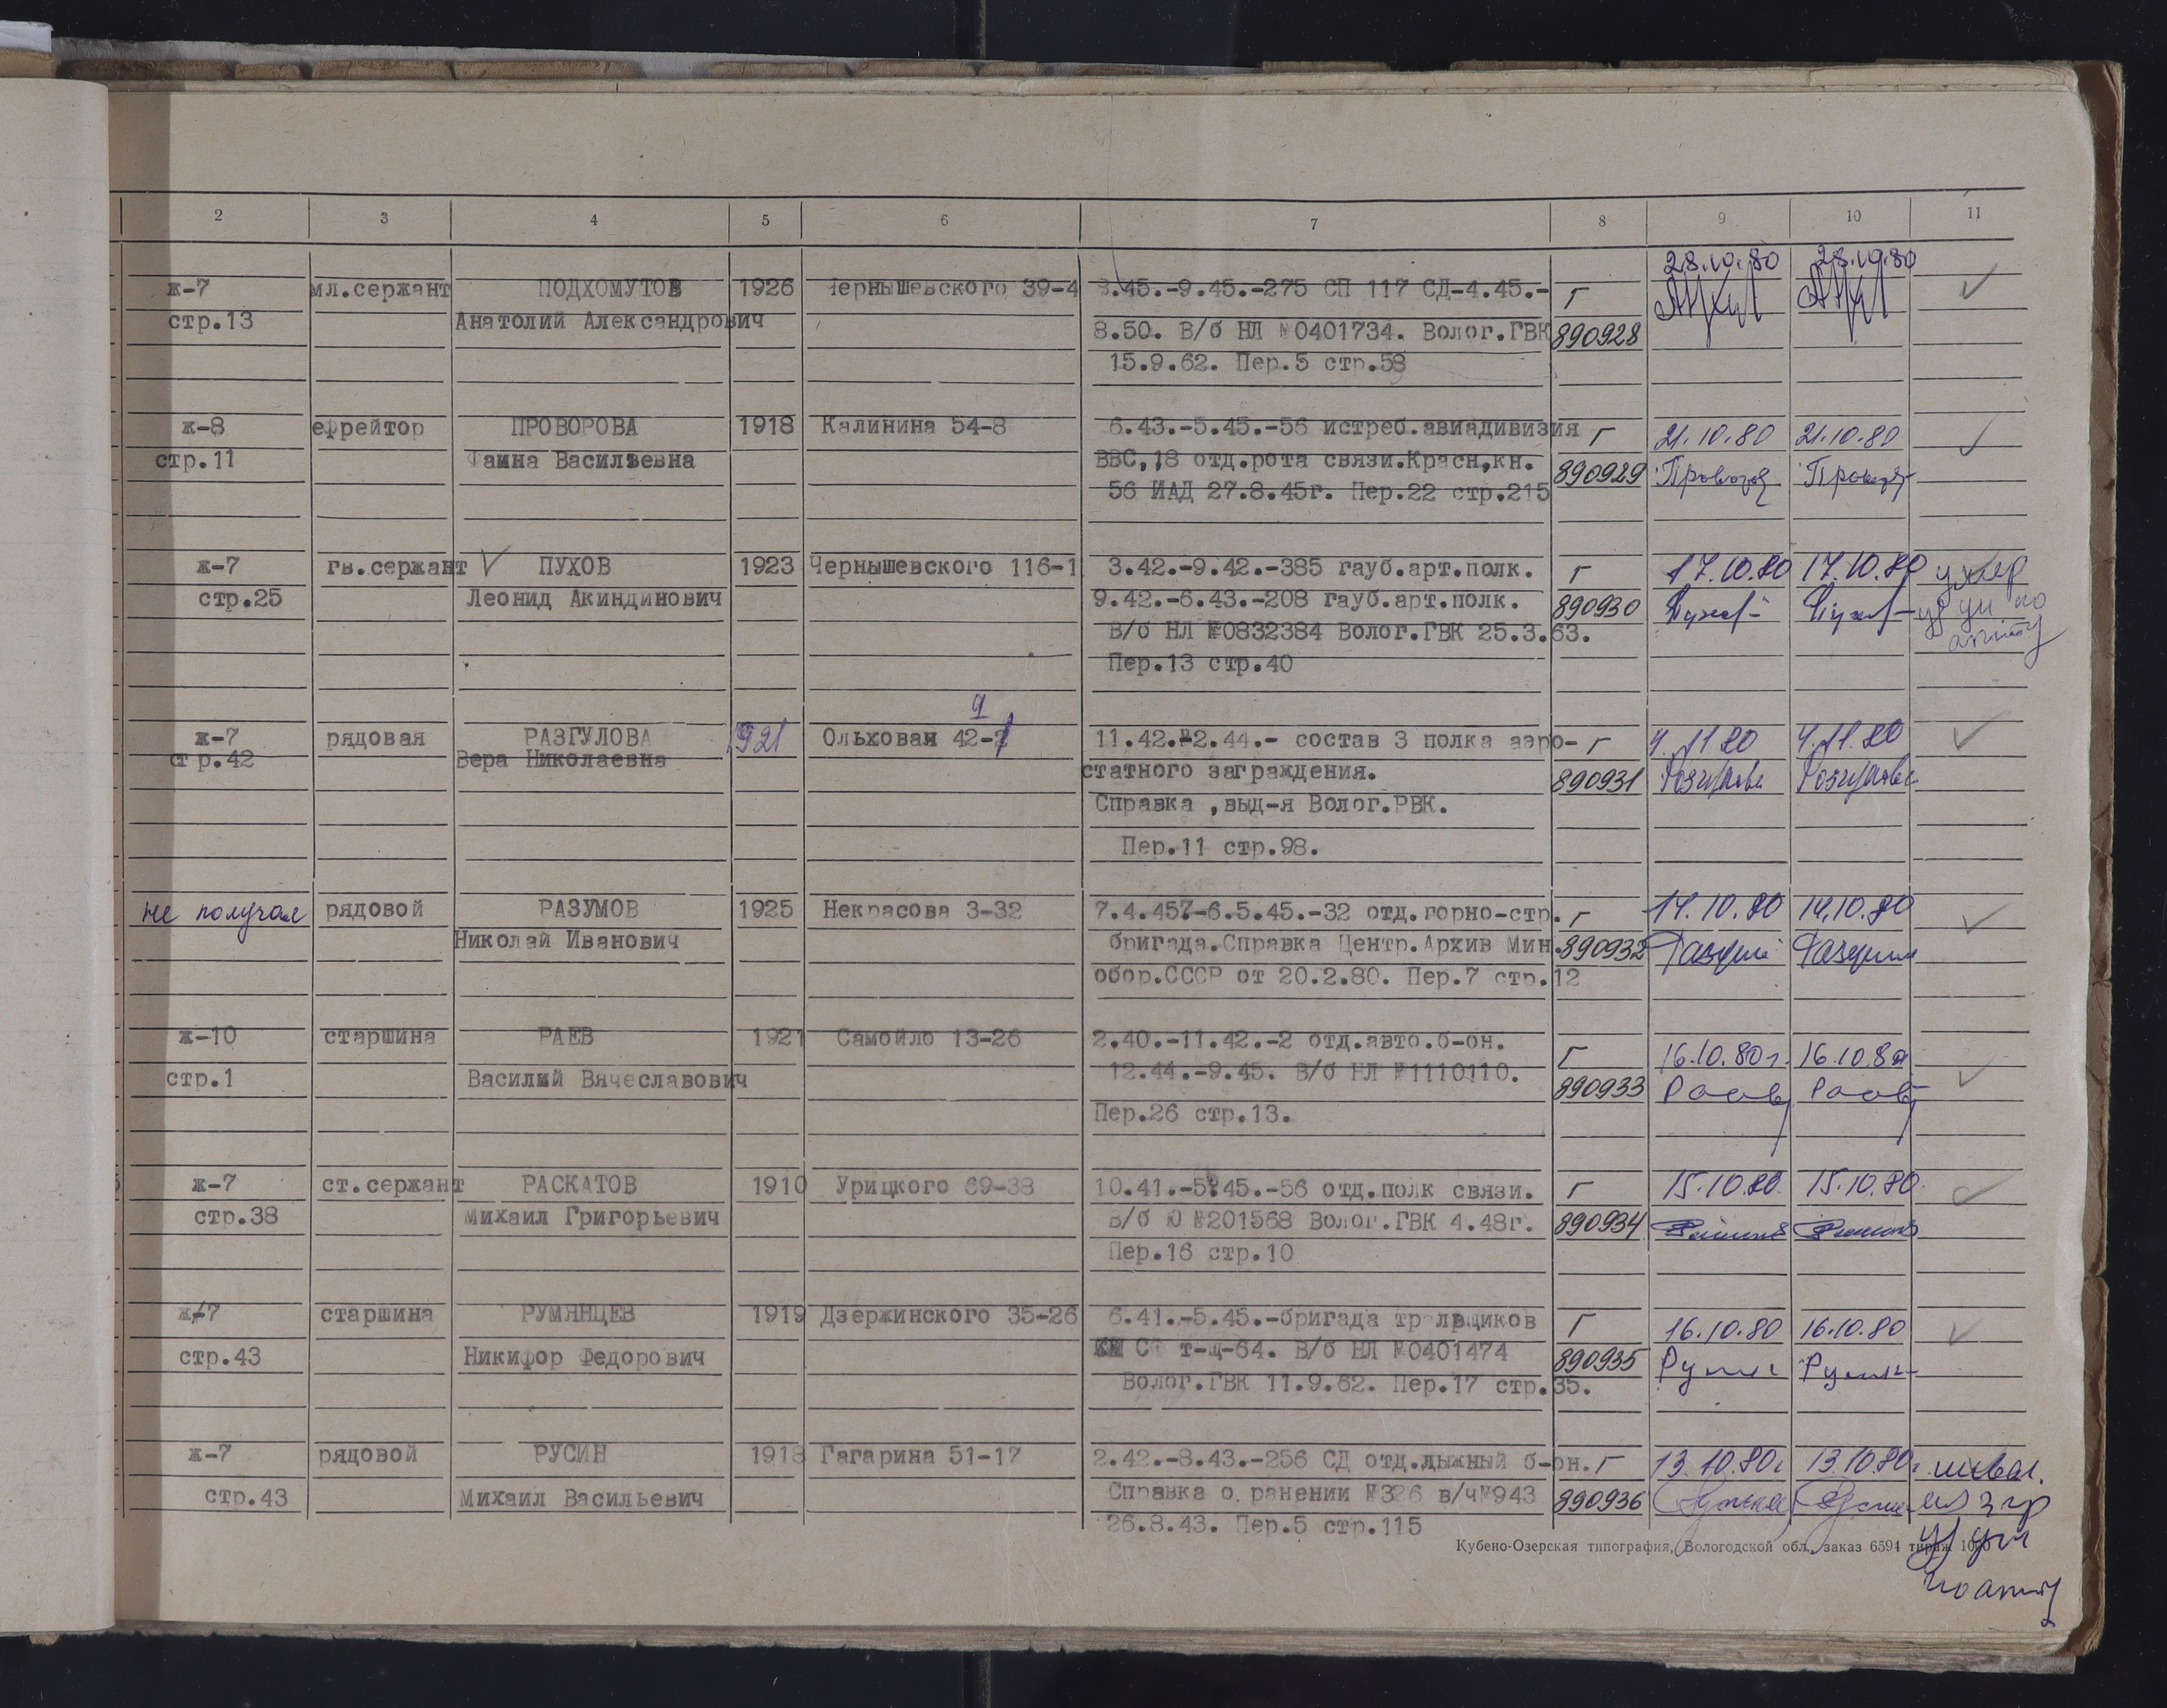 2 3 4 5 6 7 8 9 10 11
28.10.80 28.10.80
ж-7 мл.сержант ПОДХОМУТОВ 1926 Чернышевского 39-4 3.45.-9.45.-275 СП 117 СД-4.45.- Г
стр.13 Анатолий Александрович 8.50. В/б НЛ №0401734. Волог.ГВК 890928
15.9.62. Пер.5 стр.58
ж-8 ефрейтор ПРОВОРОВА 1918 Калинина 54-8 6.43.-5.45.-56 истреб.авиадивизия Г 21.10.80 21.10.80
стр.11 Фаина Васильевна ВВС,18 отд.рота связи.Красн,кн. 890929
56 ИАД 27.8.45г. Пер.22 стр.215
ж-7 гв.сержант ПУХОВ 1923 Чернышевского 116-1 3.42.-9.42.-385 гауб.арт.полк. Г 17.10.80 17.10.80 умер
стр.25 Леонид Акиндинович 9.42.-6.43.-208 гауб.арт.полк. 890930 Пухов Пухов
В/б НЛ №0832384 Волог.ГВК 25.3.63.
Пер.13 стр.40
9
ж-7 рядовая РАЗГУЛОВА 1921 Ольховая 42- 11.42.-2.44.- состав 3 полка аэро- Г 4.11.80 4.11.80
стр.42 Вера Николаевна статного заграждения. 890931 Разгулова Разгулова
Справка ,выд-я Волог.РВК.
Пер.11 стр.98.
не получал рядовой РАЗУМОВ 1925 Некрасова 3-32 7.4.45?-6.5.45.-32 отд.горно-стр. Г 14.10.80 14.10.80
Николай Иванович бригада.Справка Центр.Архив Мин. 890932
обор.СССР от 20.2.80. Пер.7 стр.12
ж-10 старшина РАЕВ 1921 Самойло 13-26 2.40.-11.42.-2 отд.авто.б-он. Г 16.10.80г. 16.10.80
стр.1 Василий Вячеславович 12.44.-9.45. В/б НЛ №1110110. 890933 Раев Раев
Пер.26 стр.13.
ж-7 ст.сержант РАСКАТОВ 1910 Урицкого 69-38 10.41.-5.45.-56 отд.полк связи. Г 15.10.80. 15.10.80.
стр.38 Михаил Григорьевич В/б Ю №201568 Волог.ГВК 4.48г. 890934
Пер.16 стр.10
ж-7 старшина РУМЯНЦЕВ 1919 Дзержинского 35-26 6.41.-5.45.-бригада тральщиков Г 16.10.80 16.10.80
стр.43 Никифор Федорович СФ т-щ-64. В/б НЛ №0401474 890935
Волог.ГВК 11.9.62. Пер.17 стр.35.
ж-7 рядовой РУСИН 1918 Гагарина 51-17 2.42.-8.43.-256 СД отд.лыжный б-он. Г 13.10.80г 13.10.80г инвал.
стр.43 Михаил Васильевич Справка о ранении №326 в/ч№943 890936
26.8.43. Пер.5 стр.115
Кубено-Озерская типография, Вологодской обл., заказ 6594 тираж